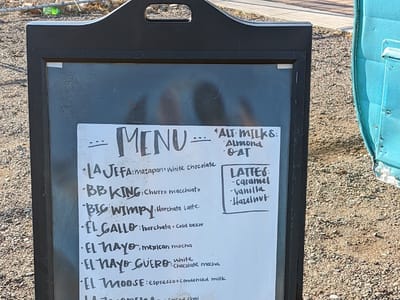 ... MENU ...
*ALT. MILKS:
Almond
OAT
• LA JEFA: mazapan + white chocolate
• BB KING: Churro macchiato
• BIG WIMPY: Horchata Latte
• EL GALLO: horchata + cold brew
• EL NAYO: mexican mocha
• EL NAYO GUERO: White
Chocolate mocha
• EL MOOSE: espresso + condensed milk
LATTES
- Caramel
- Vanilla
- Hazelnut